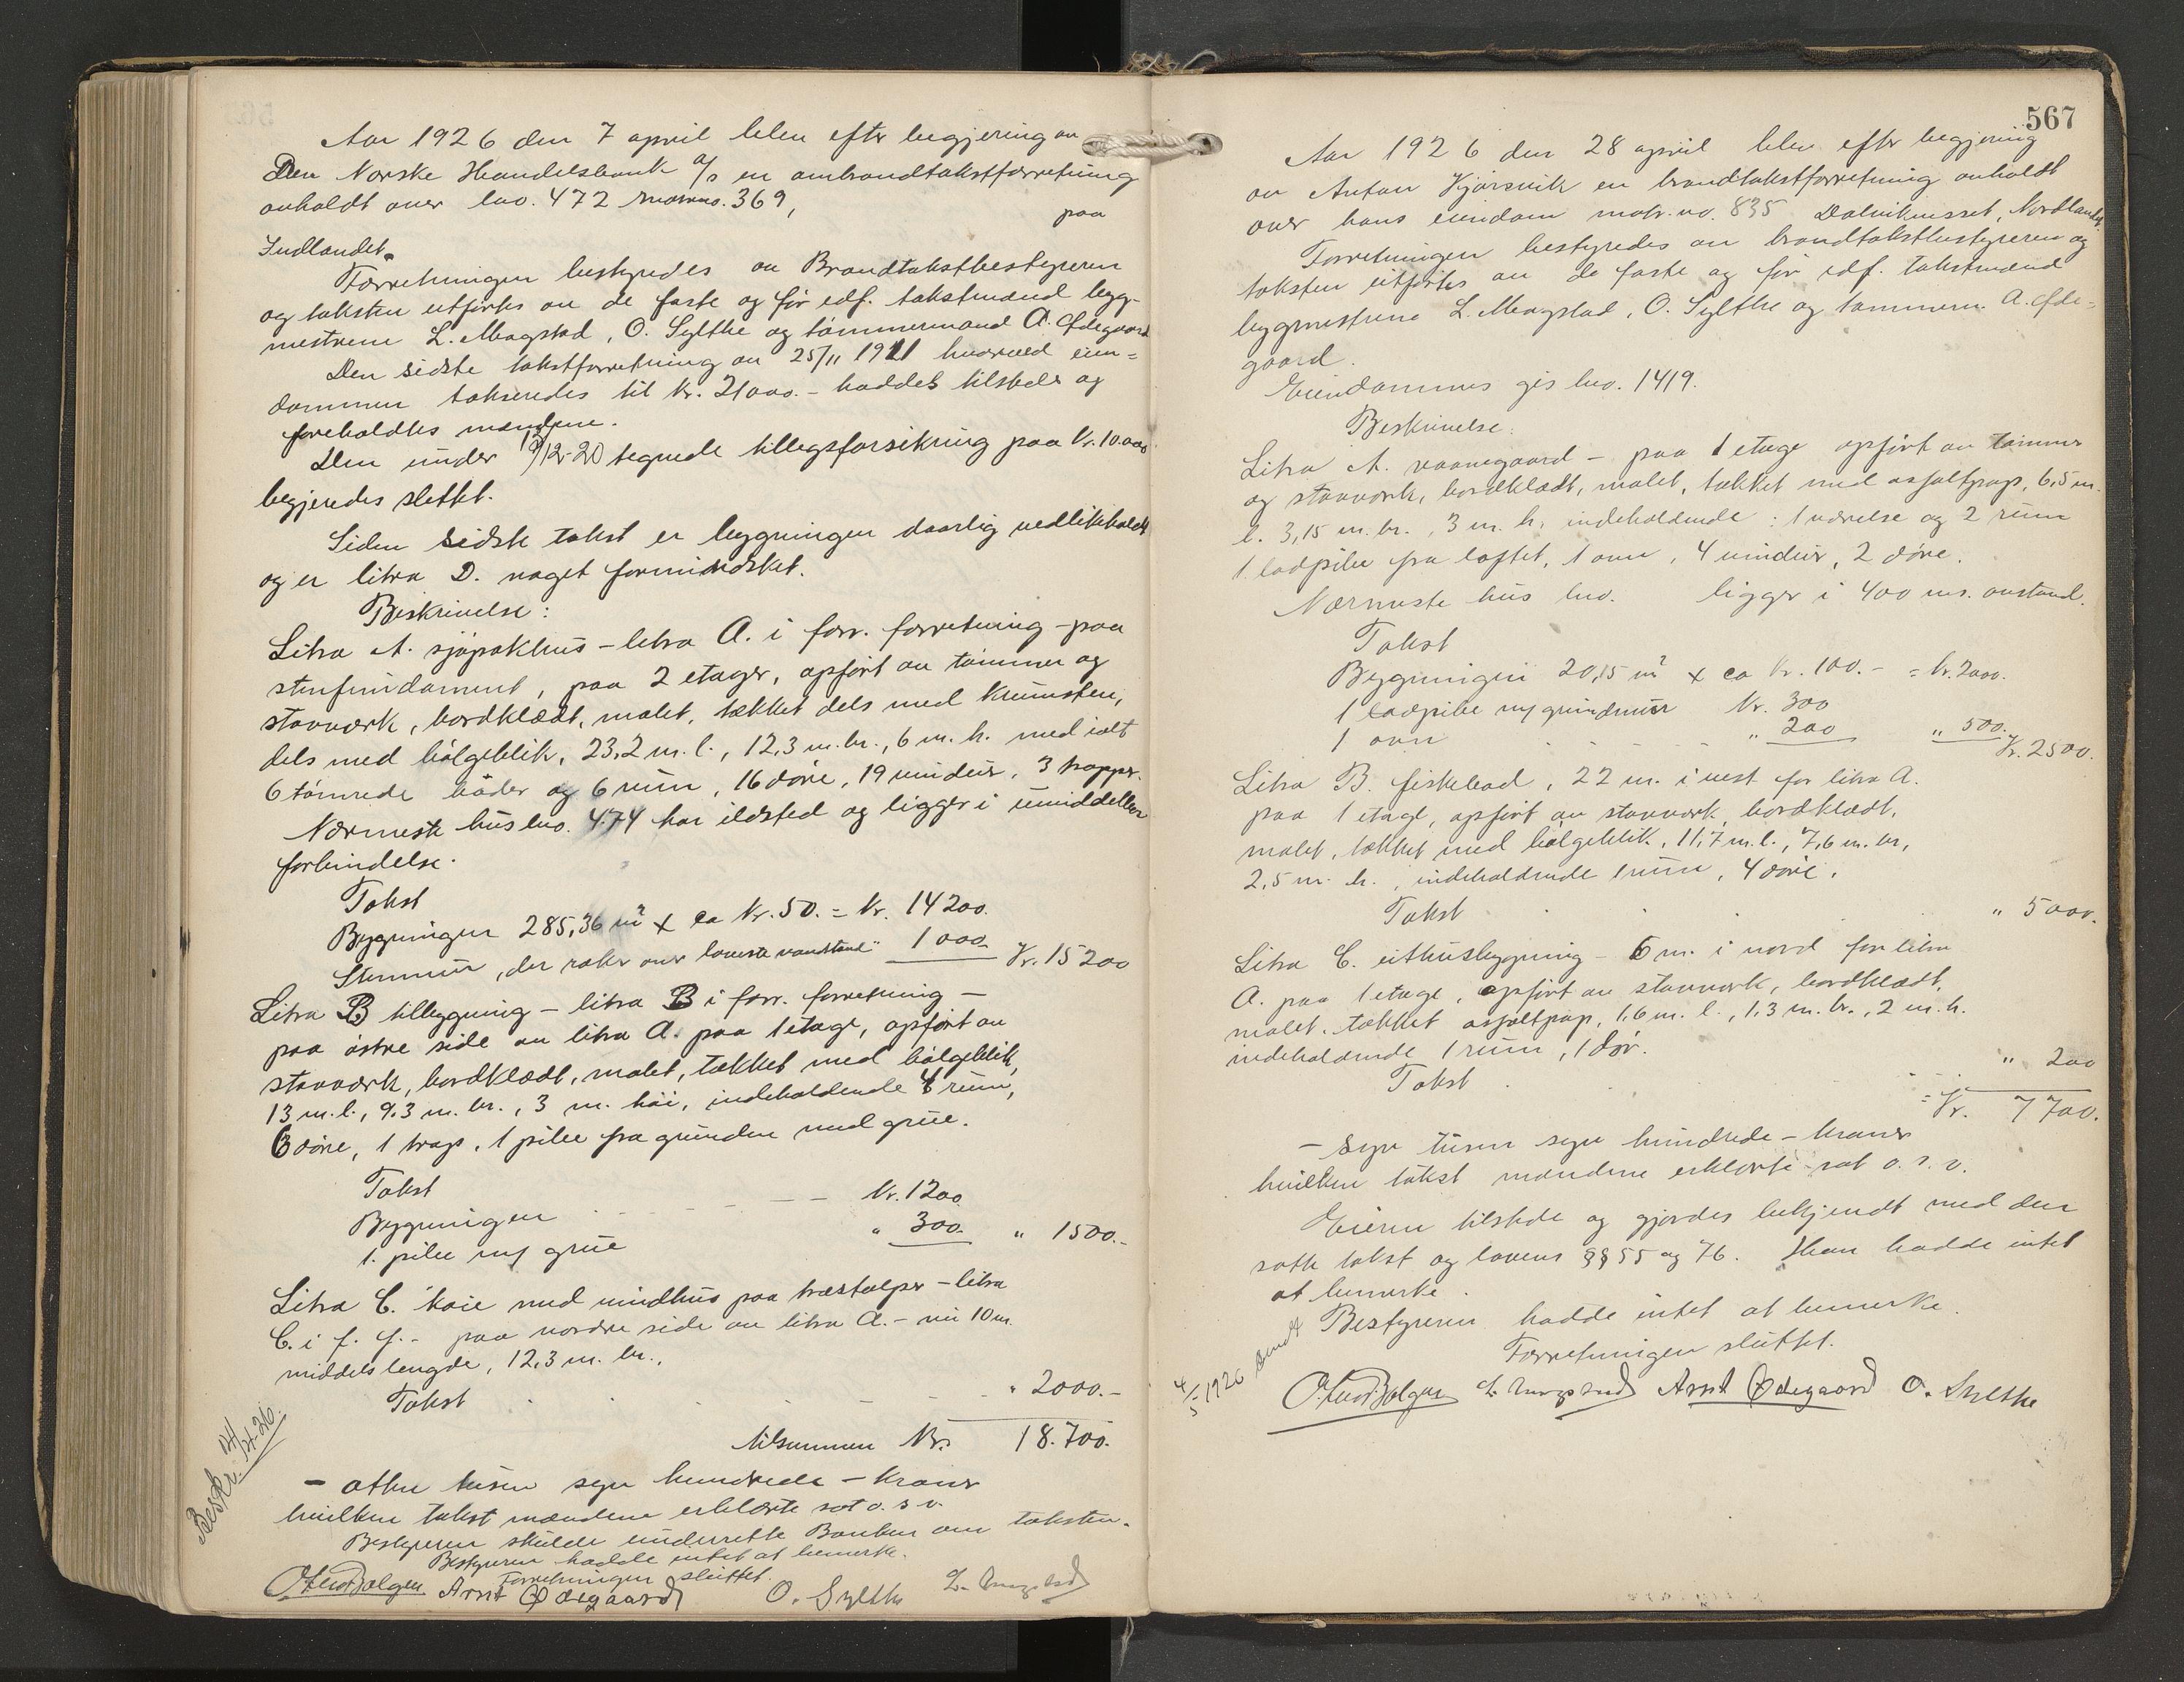 Aar 1926 den 7 april blev efter begjering av
Den Norske Handelsbank a/s en ombrandtakstforretning
avholdt over bno. 472 matr.no. 369, paa
Indlandet.
Forretningen bestyredes av Brandtakstbestyreren
og taksten utførtes av de faste og før edf. takstmænd bygg-
mestrene L. Magstad, O. Sylthe og tømmermand A. Ødegaard
Den sidste takstforretning av 25/11 1921 hvorved eien=
dommen takseredes til kr. 21000.- haddes tilstede og
foreholdtes mændene.
Den under 13/12-20 tegnede tillegsforsikring paa kr. 10.000
begjeredes slettet.
Siden sidste takst er bygningen daarlig vedlikeholdt
og er litra D. noget formindsket.
Beskrivelse:
Litra A. sjøpakhus - litra A. i forr. forretning - paa
stenfundament, paa 2 etager, opført av tømmer og
stavverk, bordklædt, malet, tækket dels med krumsten,
dels med bølgeblik, 23,2 m. l., 12,3 m. br., 6 m. h. med ialt
6 tømrede boder og 6 rum, 16 døre, 19 vinduer, 3 trapper.
Nærmeste hus bno. 474 har ildsted og ligger i umiddelbar
forbindelse.
Takst
Bygningen 285,36 m² x ca kr. 50. = kr. 14200.
Stenmur, der raker over laveste vandstand " 1000. Kr. 15200
Litra B tilbygning - litra B i forr. forretning -
paa østre side av litra A. paa 1 etage, opført av
stavverk, bordklædt, malet, tækket med bølgeblik,
13 m. l., 9.3 m. br., 3 m. høi, indeholdende 4 rum,
6 døre, 1 trap, 1 pibe fra grunden med grue.
Takst
Bygningen kr. 1200
1. pibe m/ grue " 300. " 1500.-
Litra C. kaie med vindhus paa træstolper - litra
C. i f. f. - paa nordre side av litra A. - nu 10 m.
middels lengde, 12,3 m. br.,
Takst " 2000.-
tilsammen Kr. 18.700.
- atten tusen syv hundrede - kroner
hvilken takst mændene erklærte sat o. s. v.
Bestyreren skulde underrette Banken om taksten.
Bestyreren hadde intet at bemerke.
Forretningen sluttet.
Arnt Ødegaard O. Sylthe L. Magstad
Beskr. 14/4-26.
567
Aar 1926 den 28 april blev efter begjering
av Anton Kjørsvik en brandtakstforretning avholdt
over hans eiendom matr. no. 835 Dalvikneset, Nordlandet.
Forretningen bestyredes av brandtakstbestyreren og
taksten utførtes av de faste og før edf. takstmænd
bygmestrene L. Magstad, O. Sylthe og tømmerm. A. Øde=
gaard.
Eiendommen gis bno. 1419.
Beskrivelse:
Litra A. vaanegaard - paa 1 etage opført av tømmer
og stavverk, bordklædt, malet, tækket med asfaltpap, 6,5 m.
l. 3,15 m. br., 3 m. h. indeholdende: 1 værelse og 2 rum
1 ladpibe fra loftet, 1 ovn, 4 vinduer, 2 døre.
Nærmeste hus bno. ligger i 400 ms. avstand.
Takst
Bygningen 20,15 m² x ca kr. 100.- = kr. 2000.
1 ladpibe m/ grundmur kr. 300
1 ovn " 200 " 500. Kr. 2500.
Litra B. fiskebod, 22 m. i vest for litra A.
paa 1 etage, opført av stavverk, bordklædt,
malet, tækket med bølgeblik, 11,7 m. l., 7,6 m. br,
2,5 m. h., indeholdende 1 rum, 4 døre,
Takst " 5000.
Litra C. uthusbygning - 6 m. i nord for litra
A. paa 1 etage, opført av stavverk, bordklædt,
malet, tækket asfaltpap, 1,6 m. l., 1,3 m. br., 2 m. h.
indeholdende 1 rum, 1 dør.
Takst " 200
= Kr. 7700.
- syv tusen syv hundrede - kroner
hvilken takst mændene erklærte sat o. s. v.
Eieren tilstede og gjordes bekjendt med den
satte takst og lovens §§ 55 og 76. Han hadde intet
at bemerke.
Bestyreren hadde intet at bemerke.
Forretningen sluttet.
4/5 1926 sendt
L. Magstad Arnt Ødegaard O. Sylthe